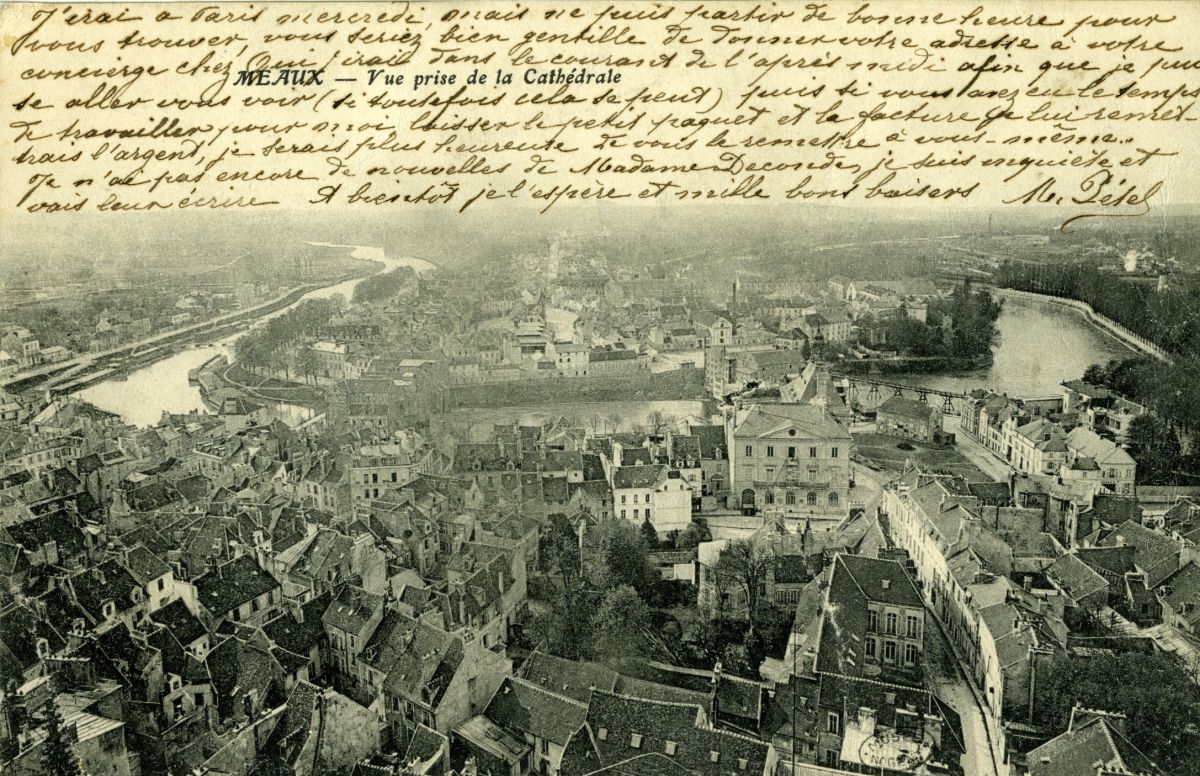 J'irai à Paris mercredi, mais ne puis partir de bonne heure pour
vous trouver, vous seriez bien gentille de donner votre adresse à votre
concierge chez qui j'irai dans le courant de l'après midi afin que je puis
MEAUX — Vue prise de la Cathédrale
se aller vous voir (si toutefois cela se peut) puis si vous avez eu le temps
de travailler pour moi, laisser le petit paquet et la facture je lui remet-
trais l'argent, je serais plus heureuse de vous le remettre à vous-même.
Je n'ai pas encore de nouvelles de Madame Deconde, je suis inquiète et
vais leur écrire A bientôt je l'espère et mille bons baisers M.